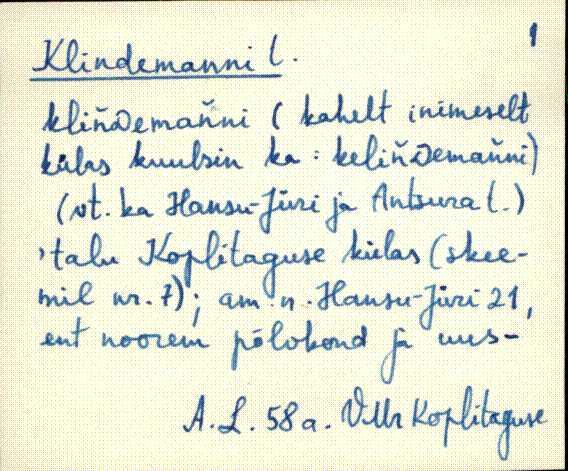 1
Klindemanni t.
kliňDemaňni ( kahelt inimeselt
külas kuulsin ka : keliňDemaňni)
(vt. ka Hansu-Jüri ja Antsura t.)
'talu Koplitaguse külas (skee-
mil nr. 7); am. n. Hansu-Jüri 21,
ent noorem põlvkond ja uus-
A. L. 58a. VMr Koplitaguse